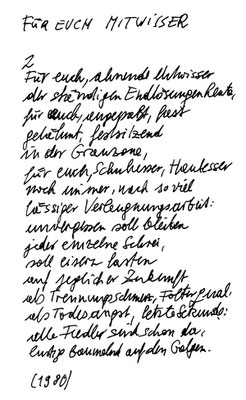 FÜR EUCH MITWISSER
2
Für euch, ahnende Mitwisser
der ständigen Endlösungen heute,
für euch, angepaßt, fast
gelähmt, festsitzend
in der Grauzone,
für euch, Schuhesser, Hautesser
noch immer, nach so viel
lässiger Verleugnungsarbeit:
unvergessen soll bleiben
jeder einzelne Schrei,
soll eisern lasten
auf jeglicher Zukunft
als Trennungsschmerz, Folterqual
als Todesangst, letzte Sekunde:
alle Fiedler sind schon da,
lustig baumelnd auf den Galgen.
(1980)